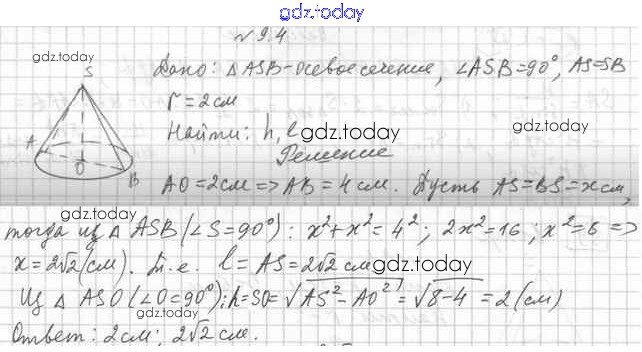 gdz.today
№ 9.4
gdz.today
S
Дано: △ ASB - осевое сечение, ∠ASB = 90°, AS=SB
r = 2 см
A
Найти: h, l gdz.today
gdz.today
Решение
O
B
AO = 2 см => AB = 4 см. Пусть AS = BS = x см,
gdz.today
тогда из △ ASB (∠S = 90°): x² + x² = 4²; 2x² = 16; x² = 6 =>
x = 2√2 (см). Т.е. l = AS = 2√2 см gdz.today
Из △ ASO (∠O = 90°): h = SO = √AS² - AO² = √8-4 = 2 (см)
gdz.today
Ответ: 2 см; 2√2 см.